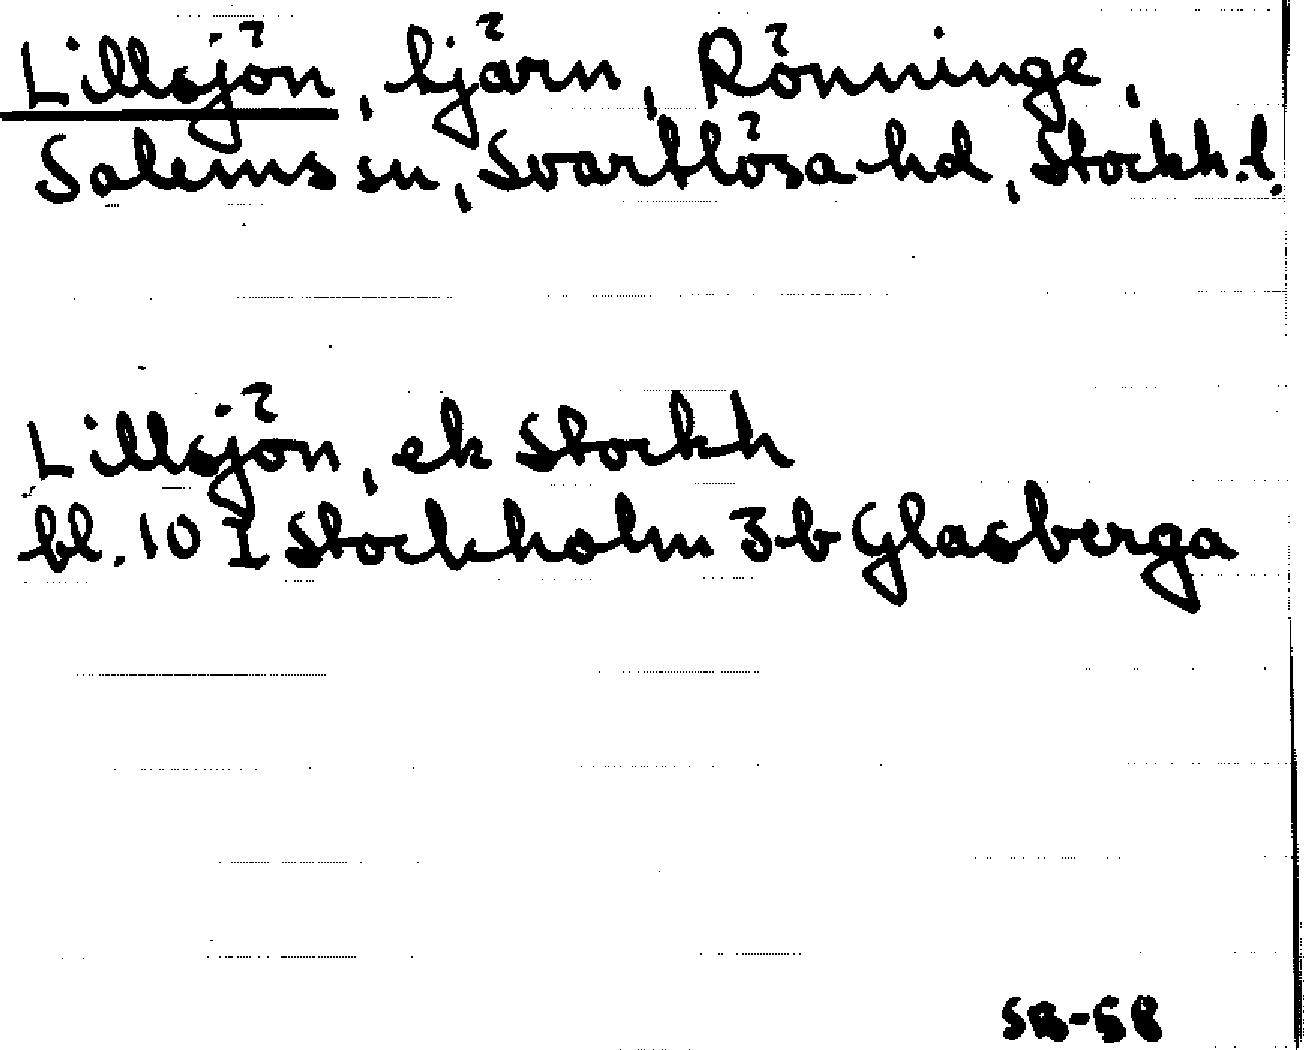 Lillsjön, tjärn, Rönninge,
Salems sn, Svartlösa hd, Stockh. l.
Lillsjön, ek Stockh
bl. 10 I Stockholm 3 b Glasberga
SB-58